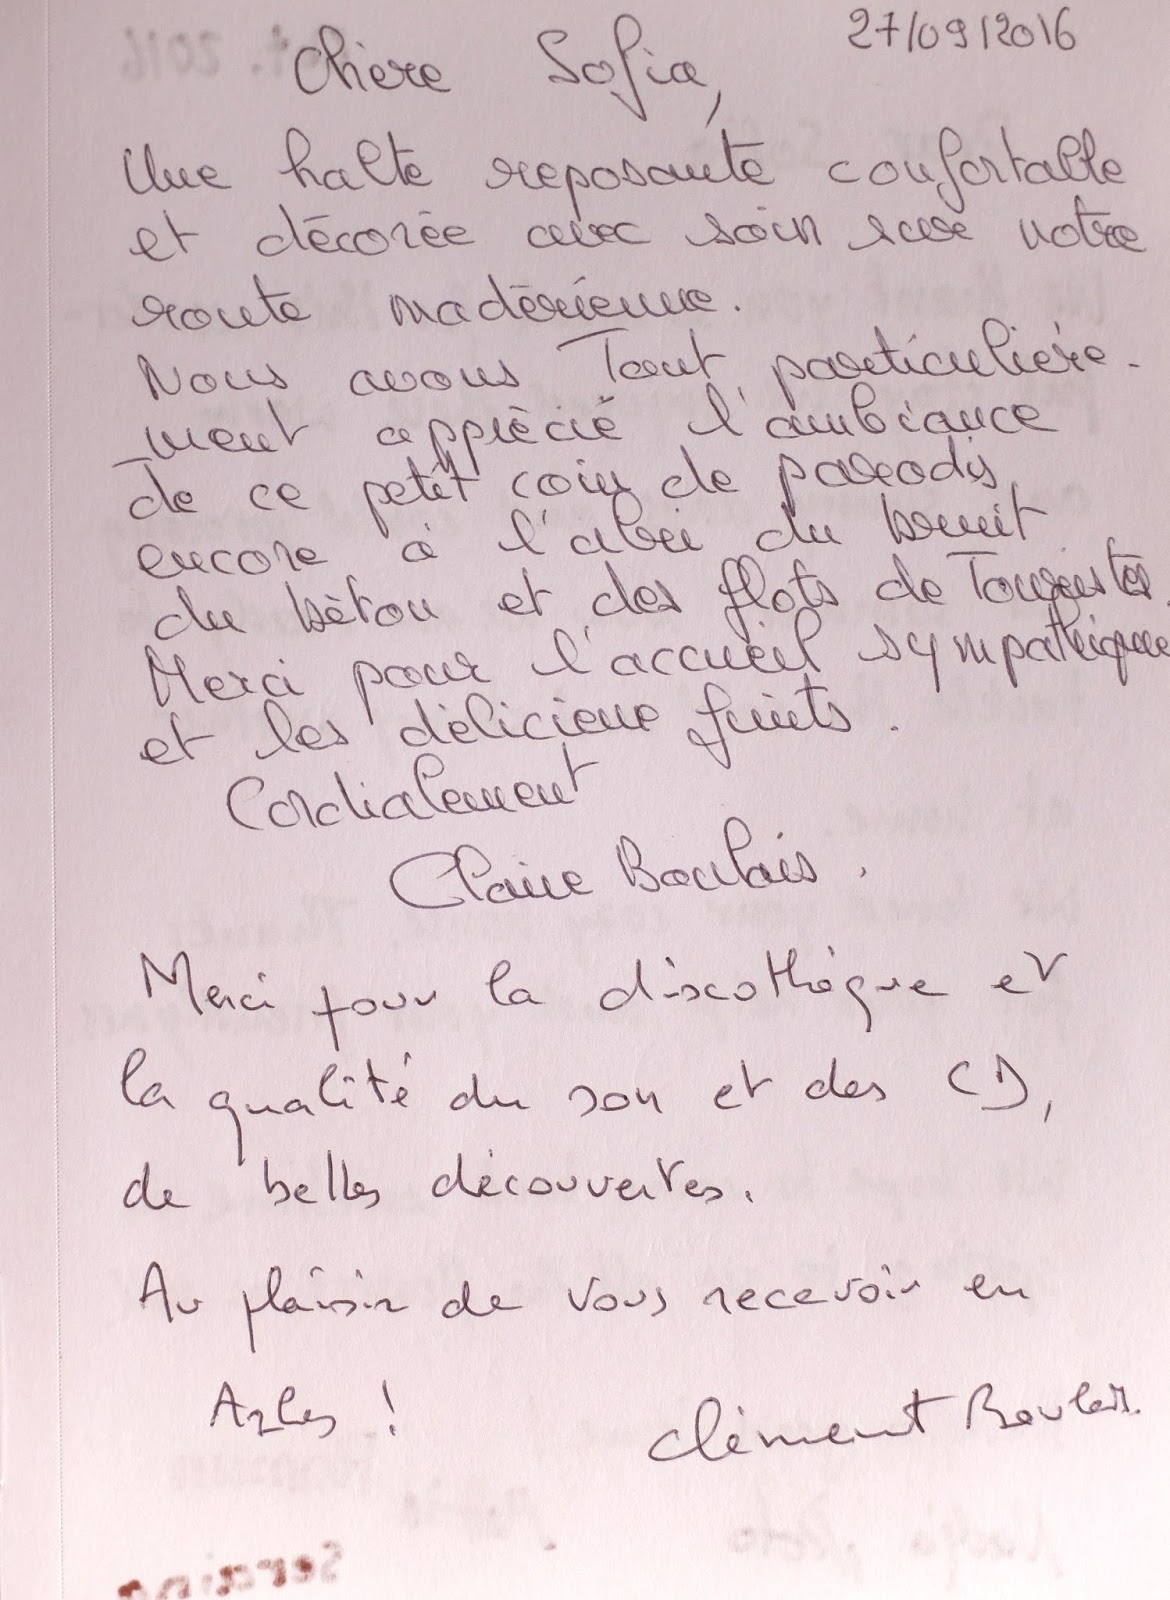 27/09/2016
Chère Sofia,
Une halte reposante confortable
et décorée avec soin sur notre
route madérienne.
Nous avons Tout particulière-
ment apprécié l'ambiance
de ce petit coin de paradis
encore à l'abri du bruit
du béton et des flots de Touristes.
Merci pour l'accueil sympathique
et les délicieux fruits.
Cordialement
Claire Boulais.
Merci pour la discothèque et
la qualité du son et des CD,
de belles découvertes.
Au plaisir de vous recevoir en
!
Clément Boulais.